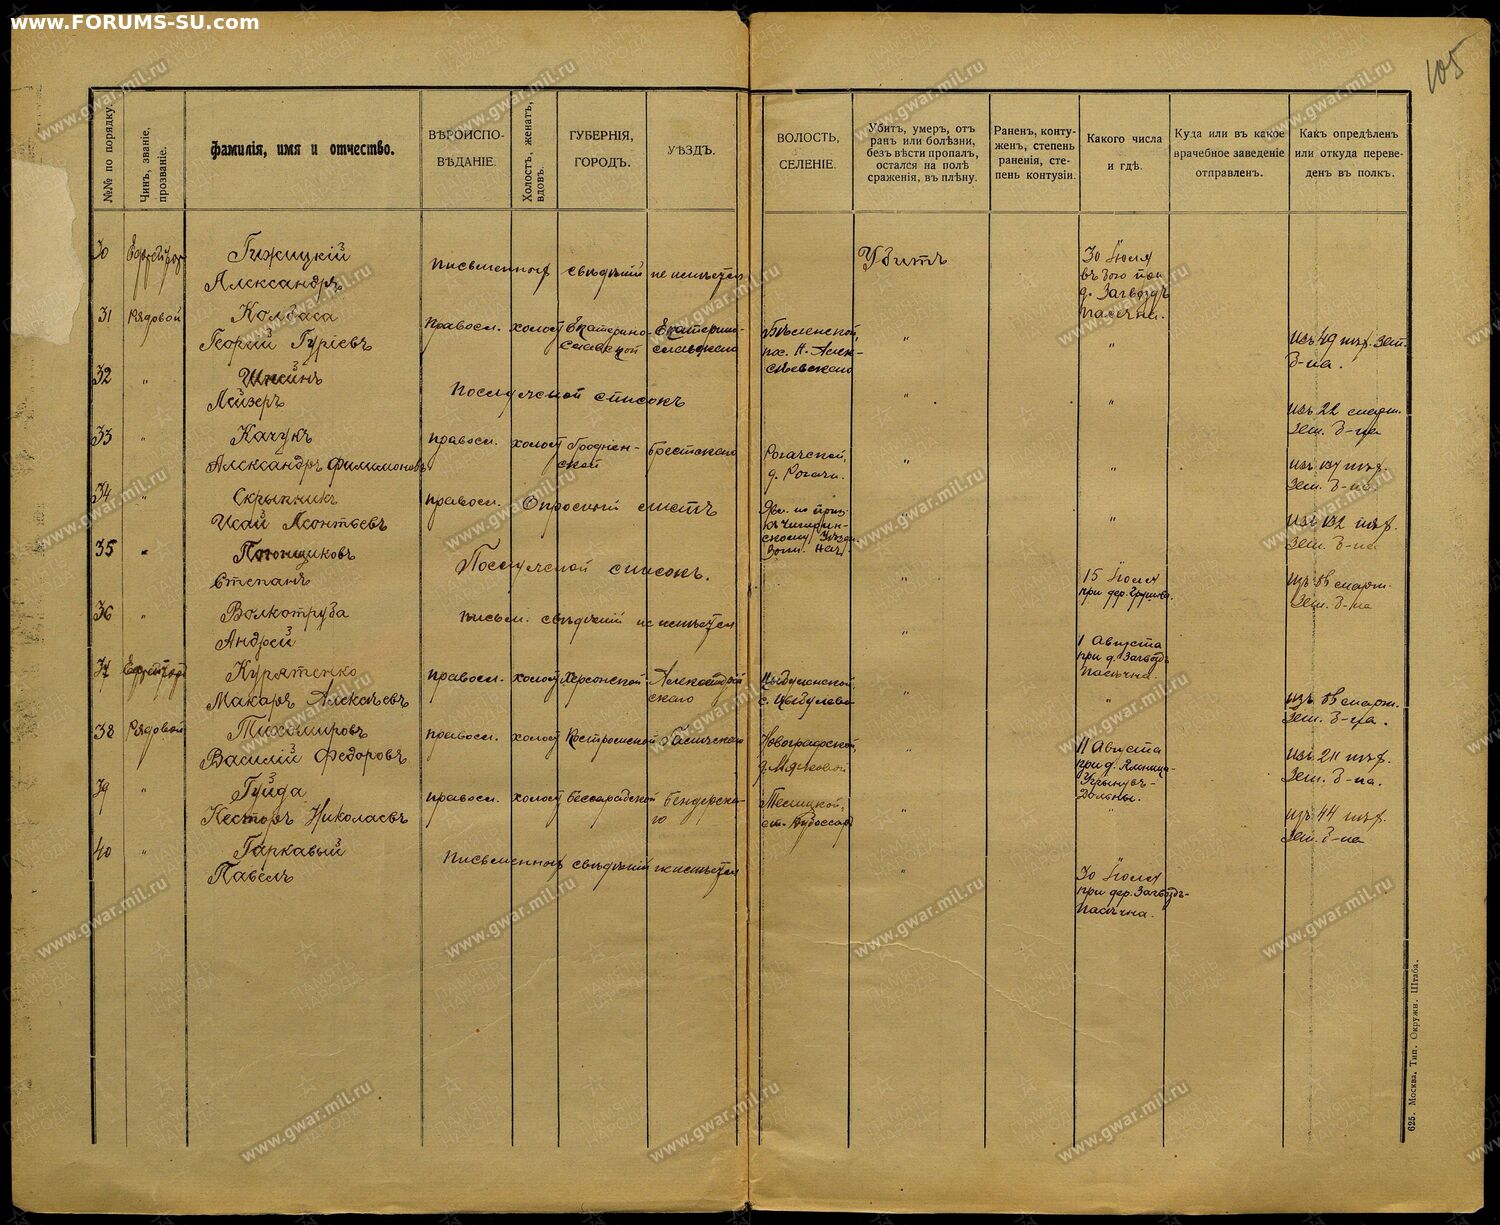 www.FORUMS-SU.com
105
№№ по порядку.
Чинъ, званіе, прозваніе.
фамилія, имя и отчество.
ВѢРОИСПО-
ВѢДАНІЕ.
Холостъ, женатъ, вдовъ.
ГУБЕРНІЯ,
ГОРОДЪ.
УѢЗДЪ.
ВОЛОСТЬ,
СЕЛЕНІЕ.
Убитъ, умеръ, отъ
ранъ или болѣзни,
безъ вѣсти пропалъ,
остался на полѣ
сраженія, въ плѣну.
Раненъ, конту-
женъ, степень
раненія, сте-
пень контузіи.
Какого числа
и гдѣ.
Куда или въ какое
врачебное заведеніе
отправленъ.
Какъ опредѣленъ
или откуда переве-
денъ въ полкъ.
30 Ефрейтор Гижицкій
Александръ
Письменныхъ свѣдѣній не имѣется
Убитъ
30 Іюля
въ бою при
д. Загвоздъ
Пасѣчна.
31 Рядовой Колбаса
Георгій Гурьевъ
правосл. холост Екатерино-
славской
Екатерино-
славскаго
пос. Н. Алек-
сѣевскаго
" "
изъ 49 пѣх. зап.
б-на.
32 " Шнейнъ
Лейзеръ
Послужной списокъ
" "
изъ 22 маршъ.
зап. б-на
33 " Качукъ
Александръ Филимоновъ
правосл. холост Гроднен-
ской
Брестскаго
Рогачской,
д. Рогачи.
" "
зап. б-на.
34 " Скрыпникъ
Исай Леонтьевъ
правосл. Опросный листъ
" "
изъ 132 пѣх.
зап. б-на
35 " Погонщиковъ
Степанъ
Послужной списокъ.
"
15 Іюля
при дер. Грушка.
зап. б-на
36 " Волкотруба
Андрей
письм. свѣдѣній не имѣется
"
1 Августа
при д. Загвоздъ
Пасѣчна.
37 Ефрейторъ Куряченко
Макаръ Алексѣевъ
правосл. холост Херсонской Александрій
скаго
Цыбулевской,
с. Цыбулево
" "
зап. б-на.
38 Рядовой Тихомировъ
Василій Федоровъ
правосл. холост Костромской Галичскаго
Новографской,
"
11 Августа
при д. Ямница-
Угрыновъ-
Дольны.
изъ 211 пѣх.
зап. б-на.
39 " Гуйда
Несторъ Николаевъ
правосл. холост Бессарабской Бендерска-
го
" "
изъ 44 пѣх.
зап. б-на
40 " Гаркавый
Павелъ
Письменныхъ свѣдѣній не имѣется
"
30 Іюля
при дер. Загвоздъ-
Пасѣчна.
625. Москва. Тип. Окружн. Штаба.
www.gwar.mil.ru
ПАМЯТЬ
НАРОДА